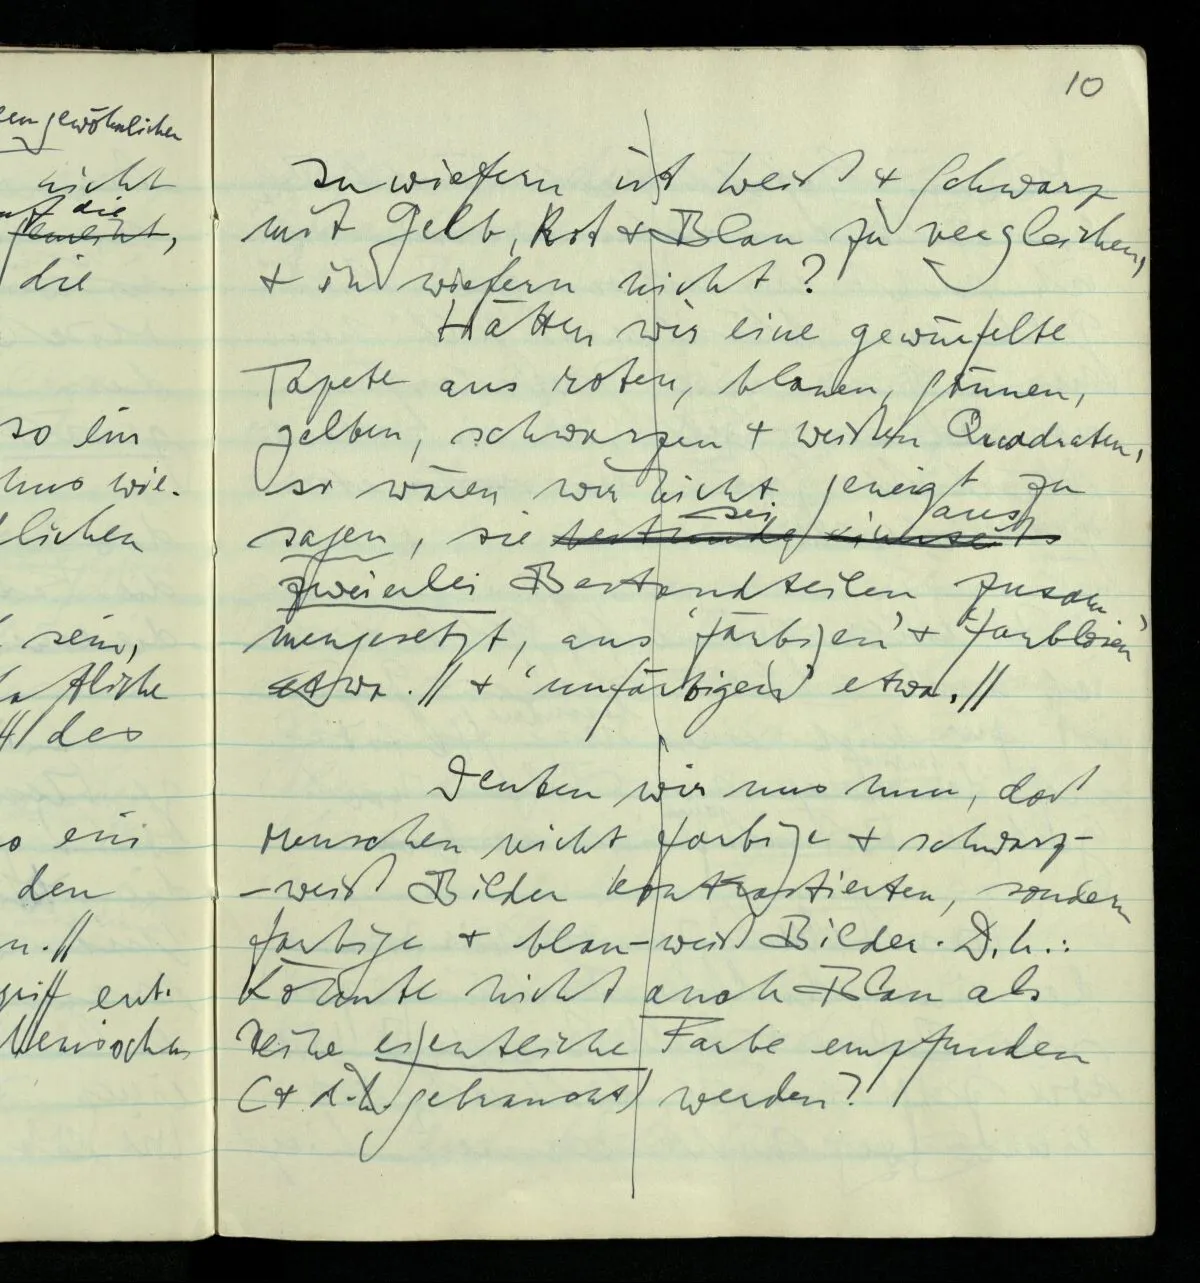 10
en gewöhnlichen
nicht
die
die
so ein
uns wie-
lichen
sein,
aftliche
des
ein
den
n.//
griff ent-
Inwiefern ist Weiß & Schwarz
mit Gelb, Rot & Blau zu vergleichen,
& in wiefern nicht?
Hätten wir eine gewürfelte
Tapete aus roten, blauen, grünen,
gelben, schwarzen & weißen Quadraten,
so wären wir nicht geneigt zu
sei aus
sagen, sie bestünde einerseits
zweierlei Bestandteilen zusam
mengesetzt, aus 'färbigen' & 'farblosen'
etwa.// & 'unfärbigen' etwa.//
Denken wir uns nun, daß
Menschen nicht farbige & schwarz-
-weiß Bilder kontrastierten, sondern
farbige & blau-weiß Bilder. D.h.:
könnte nicht auch Blau als
keine eigentliche Farbe empfunden
(& d.h. gebraucht) werden?